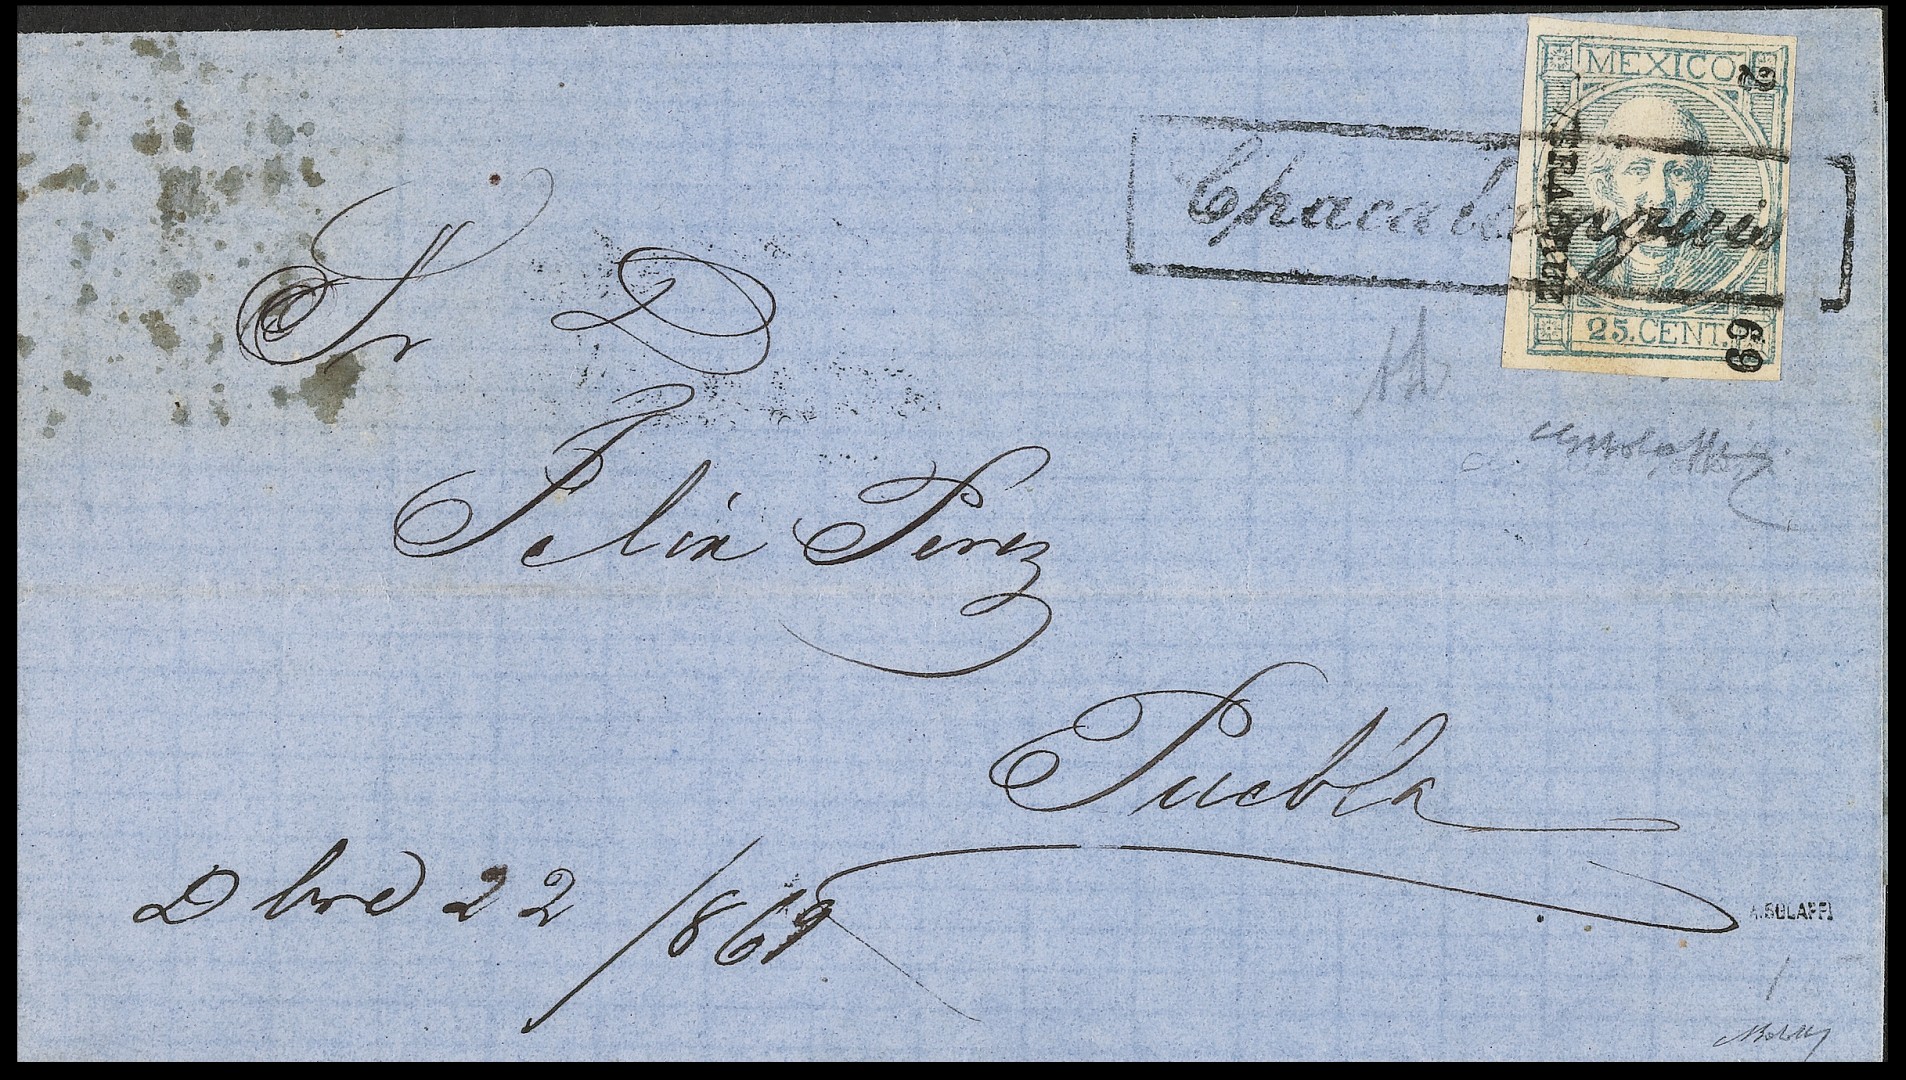 MEXICO
2
TLAXCALA
Chacaltianguis
25.CENT.
69
Sr D
Felix Perez
Puebla
Dbre 22/869
A. BOLAFFI